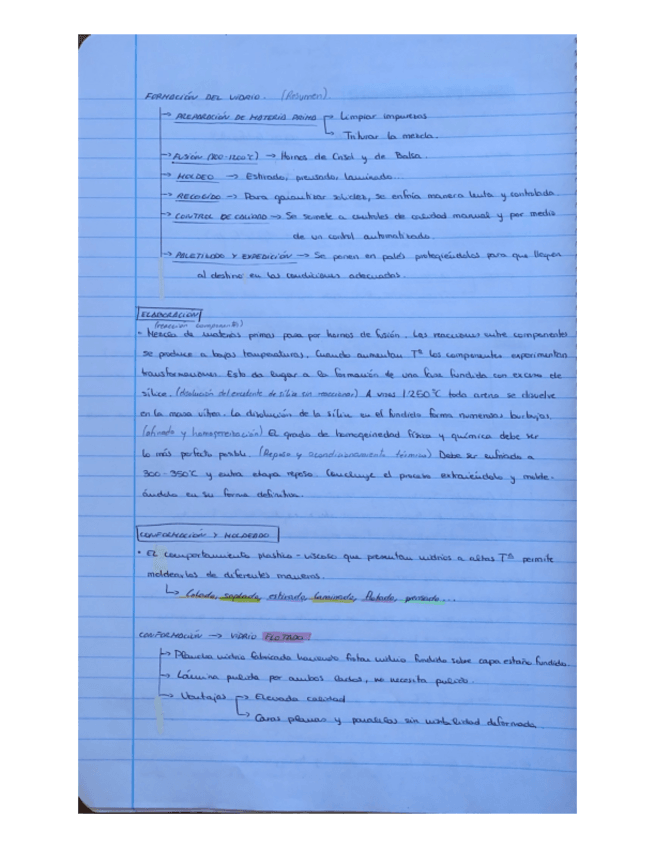 FORMACIÓN DEL VIDRIO. (Resumen)
→ PREPARACIÓN DE MATERIA PRIMA → Limpiar impurezas
→ Triturar la mezcla.
→ FUSIÓN (700-1200°C) → Hornos de Crisol y de Balsa.
→ MOLDEO → Estirado, prensado, laminado...
→ RECOCIDO → Para garantizar solidez, se enfría manera lenta y controlada.
→ CONTROL DE CALIDAD → Se somete a controles de calidad manual y por medio
de un control automatizado.
→ PALETIZADO Y EXPEDICIÓN → Se ponen en palés protegiéndolos para que lleguen
al destino en las condiciones adecuadas.
ELABORACIÓN
(reacción componentes)
• Mezcla de materias primas pasa por hornos de fusión. Las reacciones entre componentes
se produce a bajas temperaturas. Cuando aumentan Tª los componentes experimentan
transformaciones. Esto da lugar a la formación de una fase fundida con exceso de
sílice. (disolución del excedente de sílice sin reaccionar) A unos 1250°C toda arena se disuelve
en la masa vítrea. La disolución de la sílice en el fundido forma numerosas burbujas.
(afinado y homogeneización) El grado de homogeneidad física y química debe ser
lo más perfecto posible. (Reposo y acondicionamiento térmico) Debe ser enfriado a
300-350°C y entra etapa reposo. Concluye el proceso extrayéndolo y molde-
ándolo en su forma definitiva.
CONFORMACIÓN Y MOLDEADO
• El comportamiento plástico-viscoso que presentan vidrios a altas Tª permite
moldearlos de diferentes maneras.
↳ Colado, soplado, estirado, laminado, flotado, prensado...
CONFORMACIÓN → VIDRIO FLOTADO
→ Plancha vidrio fabricada haciendo flotar vidrio fundido sobre capa estaño fundido.
→ Lámina pulida por ambos lados, no necesita pulido.
→ Ventajas → Elevada calidad
→ Caras planas y paralelas sin visibilidad deformada.